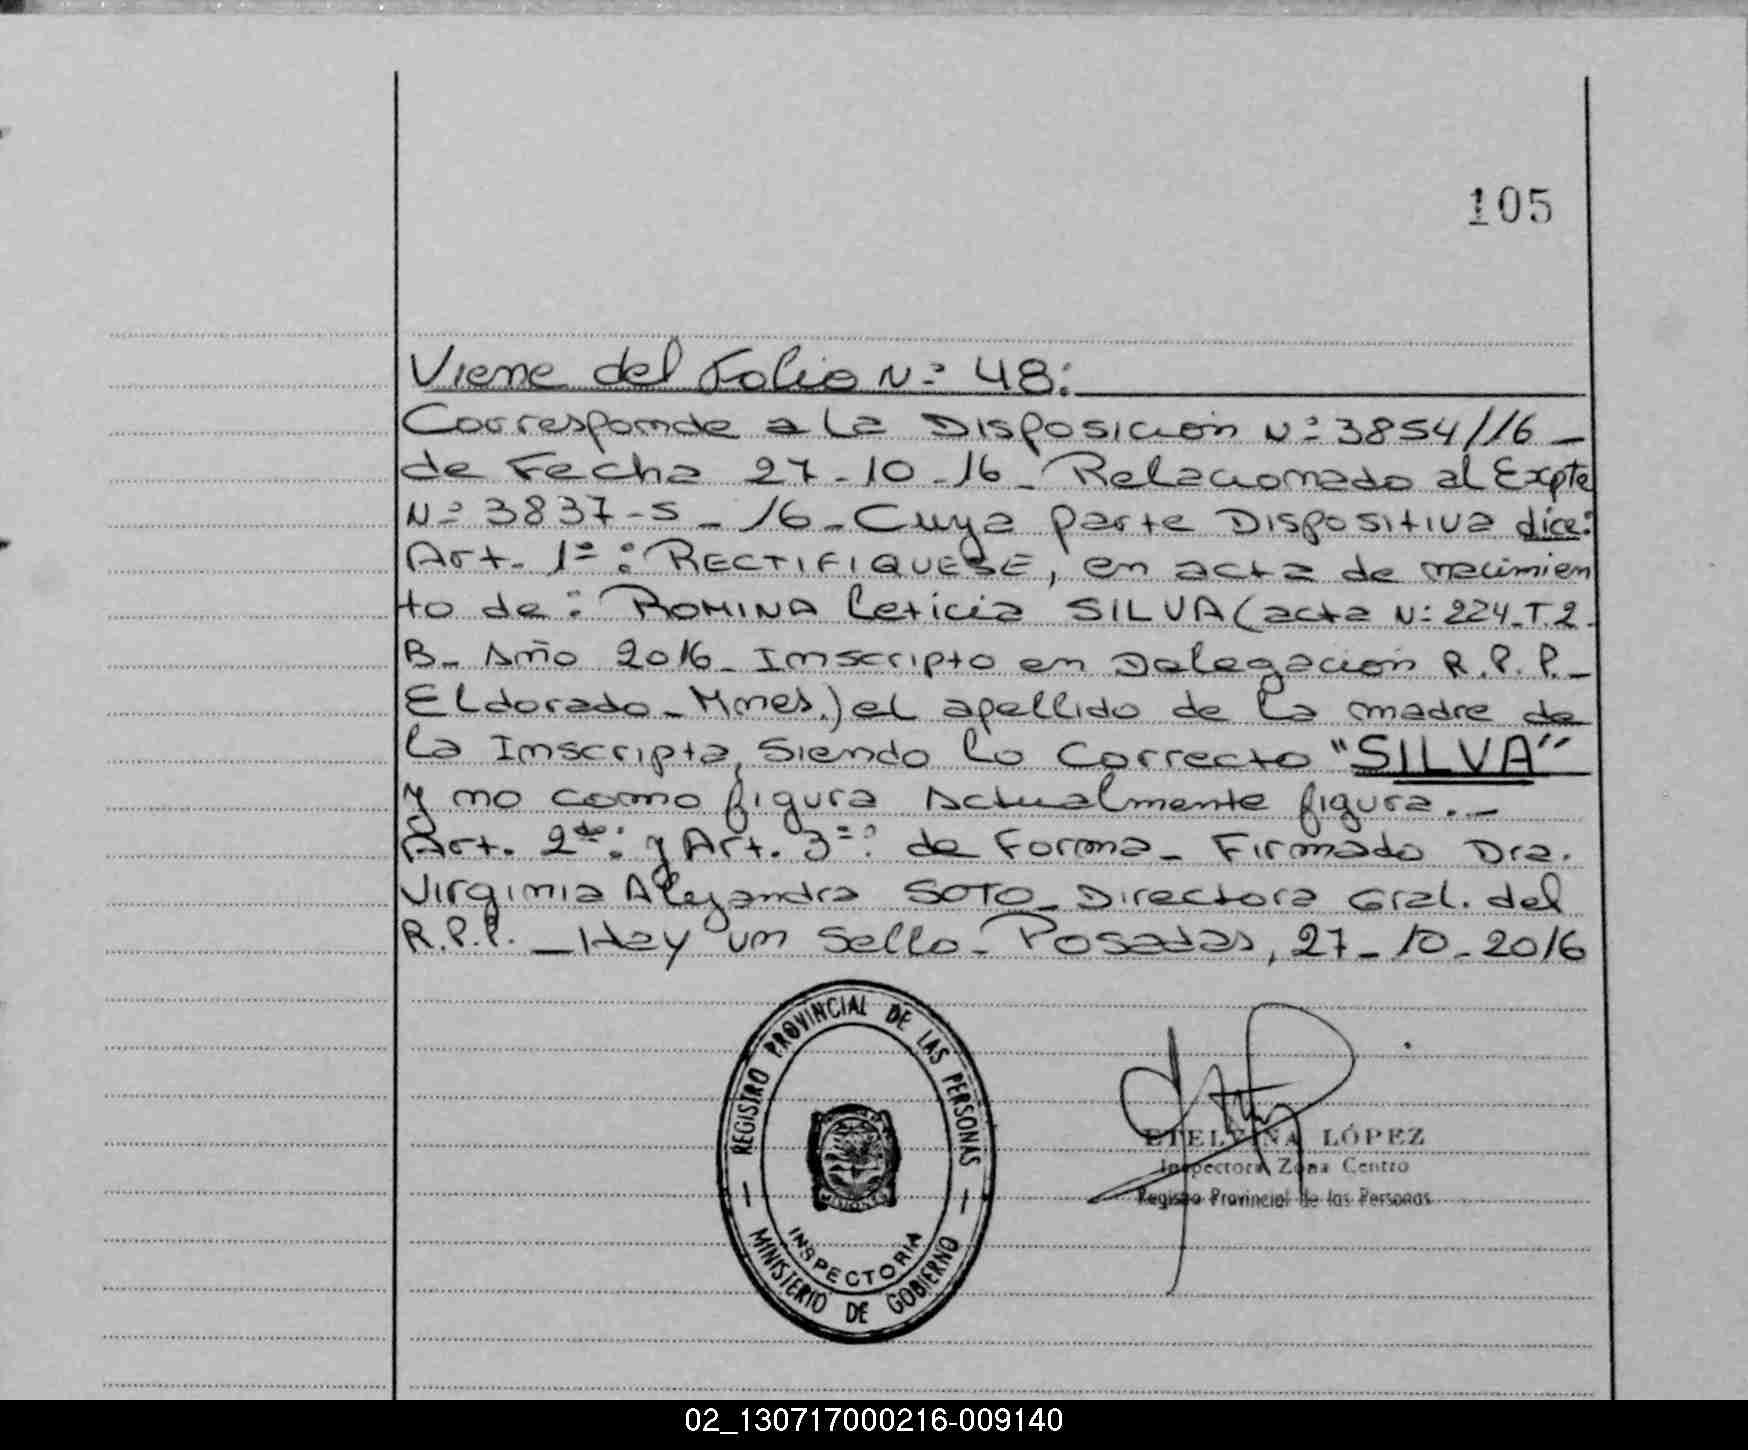 105
Viene del Folio Nº 48:
Corresponde a la Disposición Nº 3854//16 _
de Fecha 27-10-16_ Relacionado al Expte
Nº 3837-S_ /16_ Cuya parte Dispositiva dice:
Art. 1º: RECTIFIQUESE, en acta de nacimien
to de: ROMINA Leticia SILVA (acta Nº 224_T.2_
B_ Año 2016_ Inscripto en Delegación R.P.P._
Eldorado_ Mnes.) el apellido de la madre de
la Inscripta, Siendo lo Correcto "SILVA"
y no como figura Actualmente figura._
Art. 2do: y Art. 3º: de Forma_ Firmado Dra.
Virginia Alejandra SOTO_ Directora Gral. del
R.P.P. _ Hay un Sello_ Posadas, 27_10_2016
REGISTRO PROVINCIAL DE LAS PERSONAS
INSPECTORIA
MINISTERIO DE GOBIERNO
ETELVINA LÓPEZ
Inspectora Zona Centro
Registro Provincial de las Personas
02_130717000216-009140